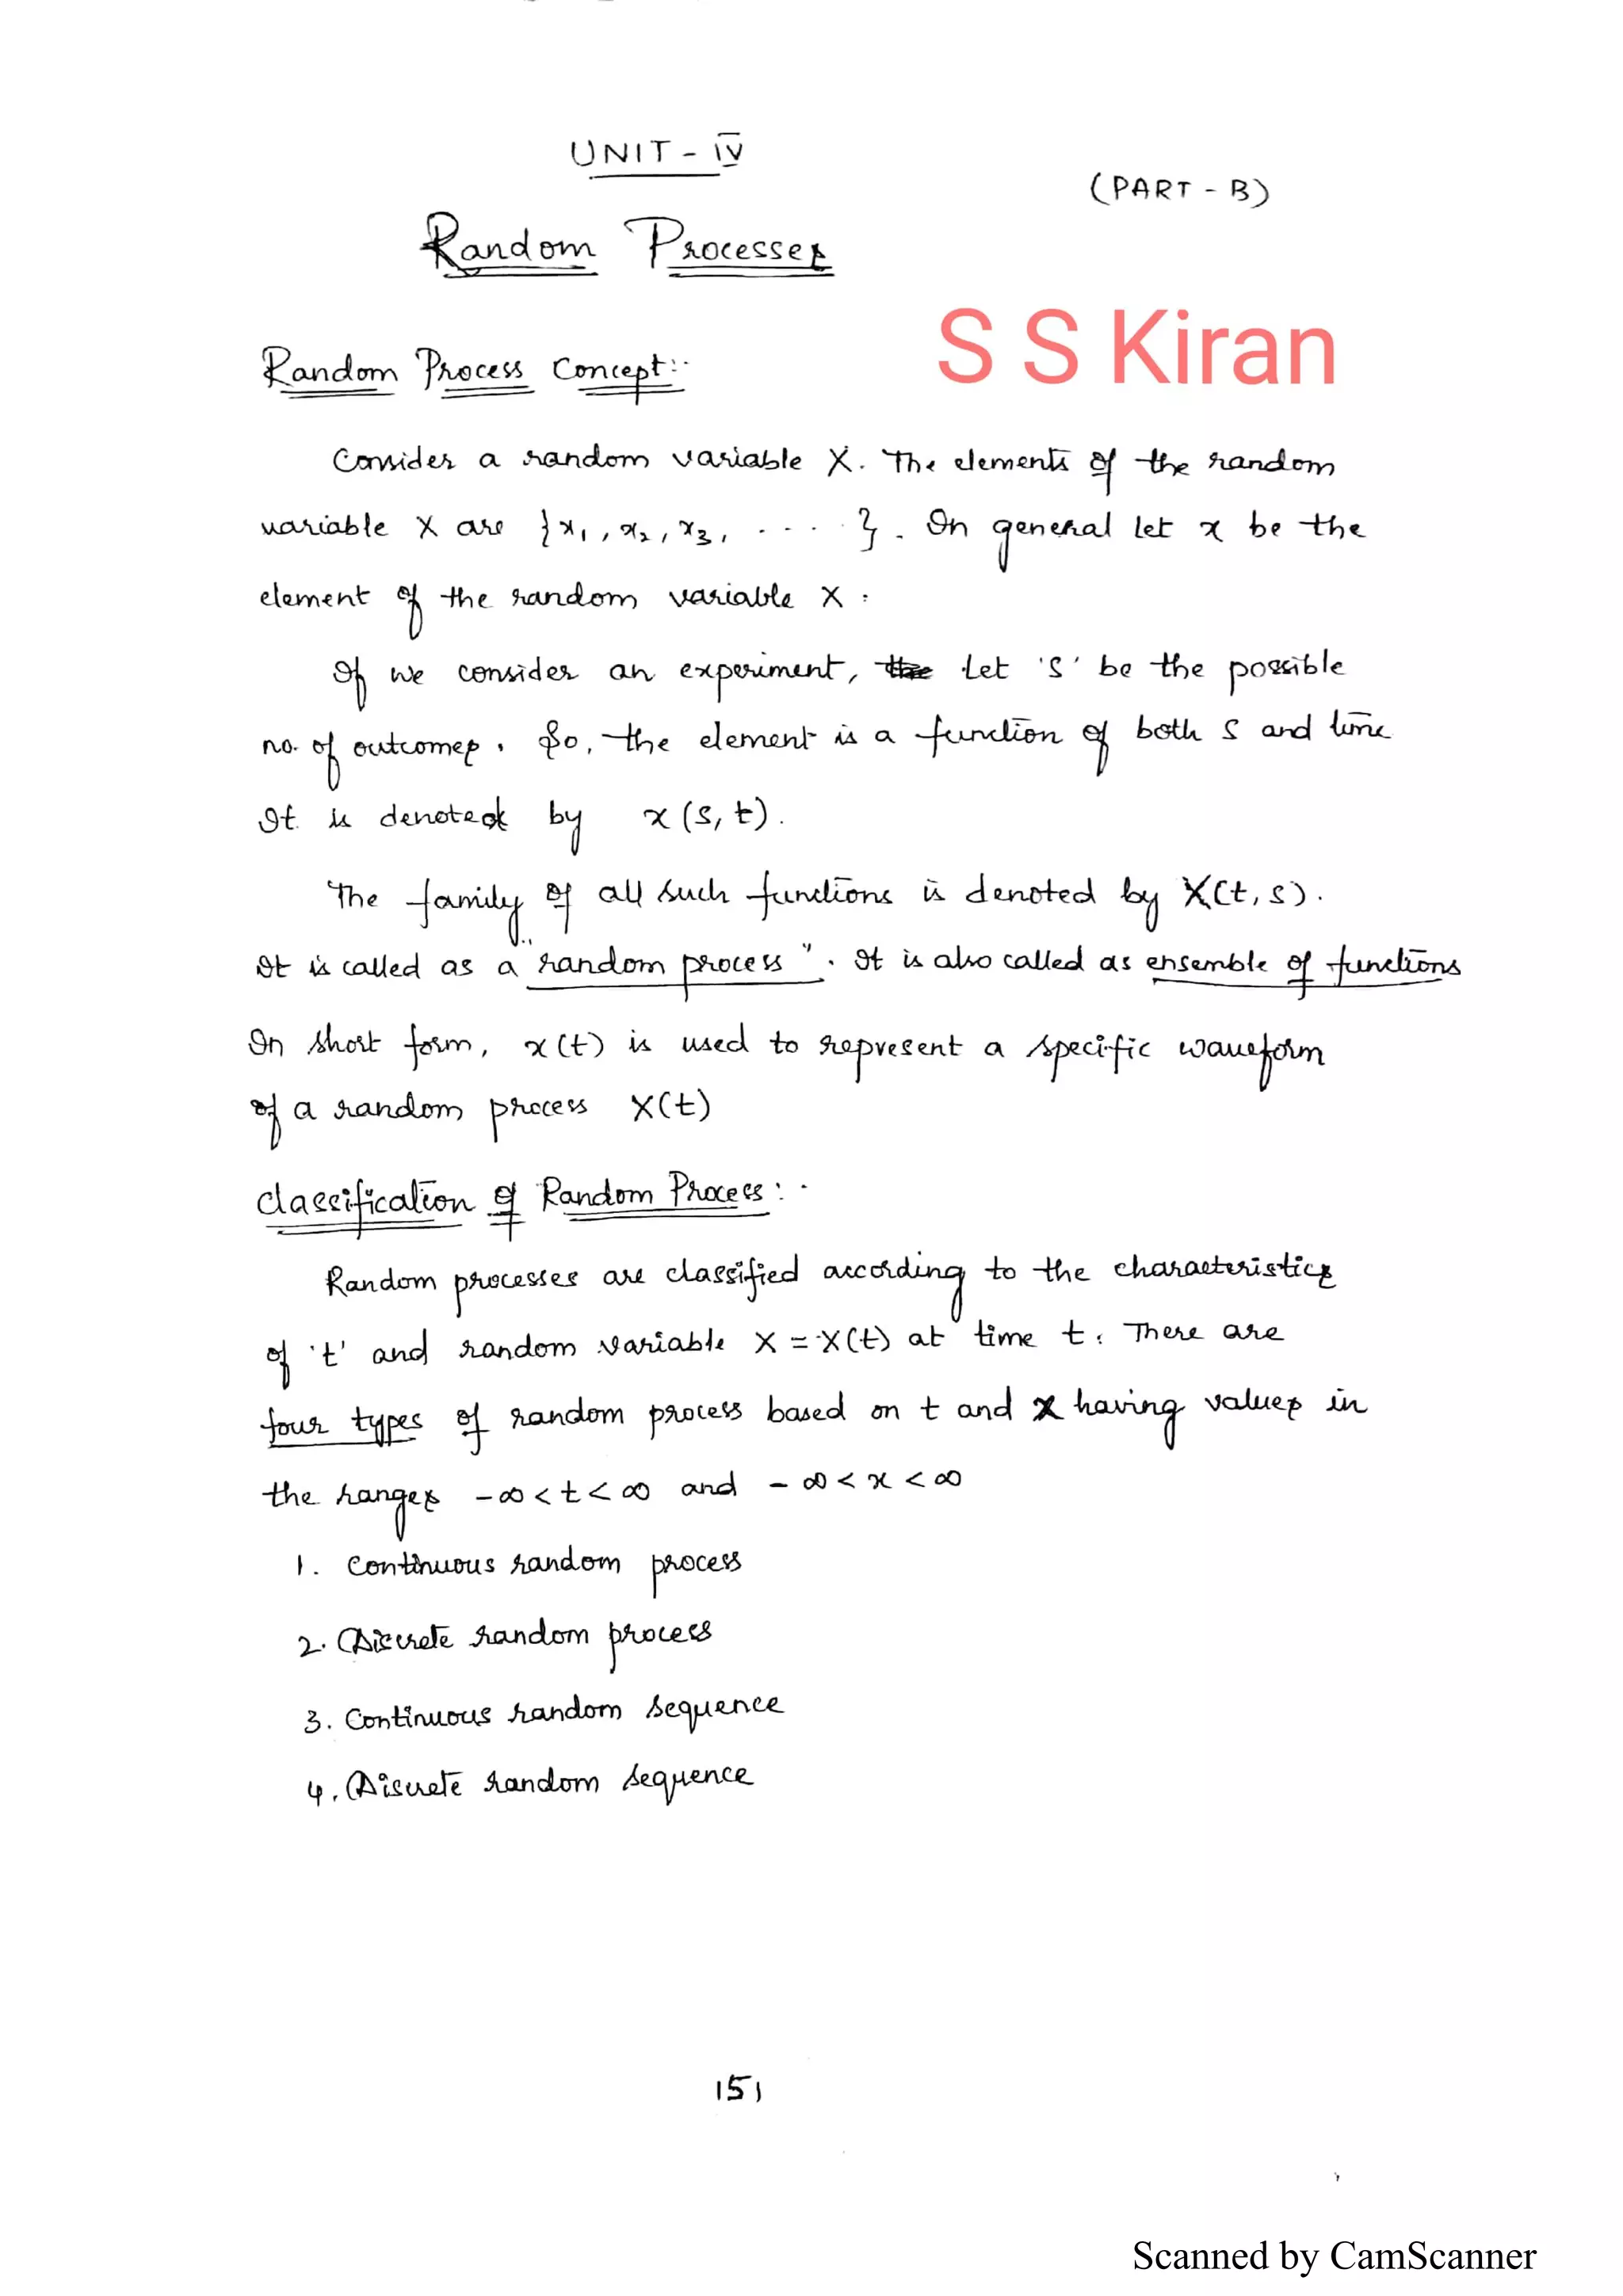 UNIT - IV
(PART - B)
Random Processes
S S Kiran
Random Process Concept:-
Consider a random variable X. The elements of the random
variable X are {x₁, x₂, x₃, ..... }. In general let x be the
element of the random variable X.
If we consider an experiment, the Let 's' be the possible
no. of outcomes. So, the element is a function of both s and time
It is denoted by x(s, t).
The family of all such functions is denoted by X(t, s).
It is called as a "random process". It is also called as ensemble of functions
In short form, x(t) is used to represent a specific waveform
of a random process X(t)
Classification of Random Process:-
Random processes are classified according to the characteristics
of 't' and random variable X = X(t) at time t. There are
four types of random process based on t and x having values in
the ranges -∞ < t < ∞ and -∞ < x < ∞
1. Continuous random process
2. Discrete random process
3. Continuous random sequence
4. Discrete random sequence
151
Scanned by CamScanner